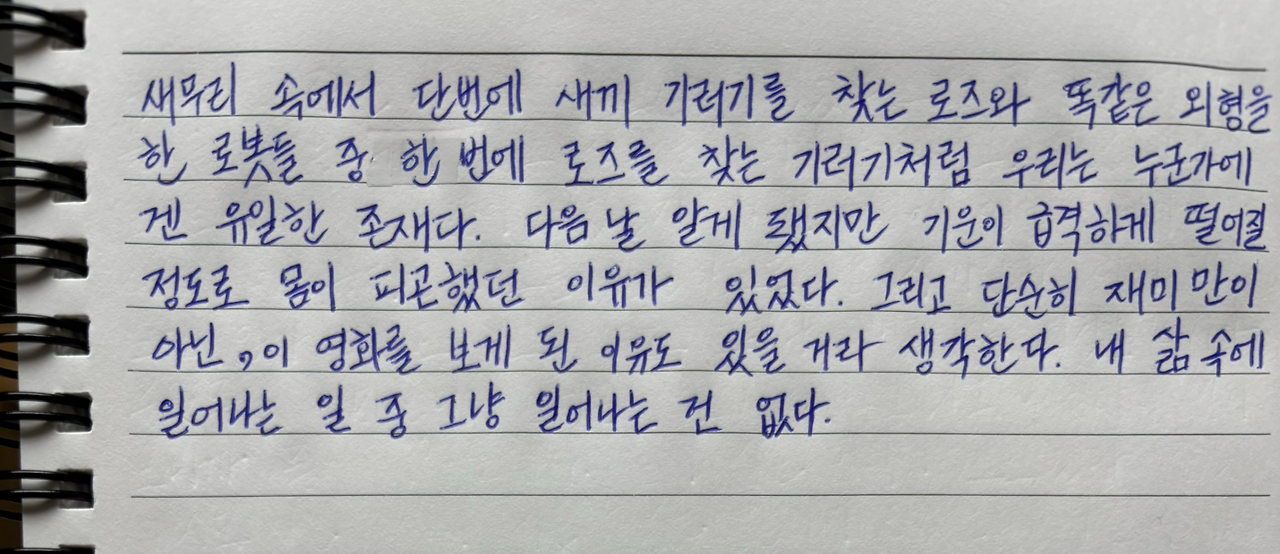 새무리 속에서 단번에 새끼 기러기를 찾는 로즈와 똑같은 외형을
한 로봇들 중 한 번에 로즈를 찾는 기러기처럼 우리는 누군가에
겐 유일한 존재다. 다음 날 알게 됐지만 기운이 급격하게 떨어질
정도로 몸이 피곤했던 이유가 있었다. 그리고 단순히 재미만이
아닌, 이 영화를 보게 된 이유도 있을 거라 생각한다. 내 삶 속에
일어나는 일 중 그냥 일어나는 건 없다.